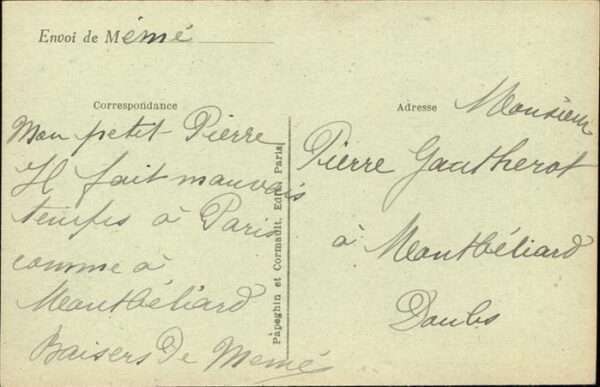 Envoi de Mémé
Correspondance
Mon petit Pierre
Il fait mauvais
temps à Paris
comme à
Montbéliard
Baisers de Memé
Papeghin et Cormault, Edit. Paris
Adresse
Monsieur
Pierre Gautherot
à Montbéliard
Doubs